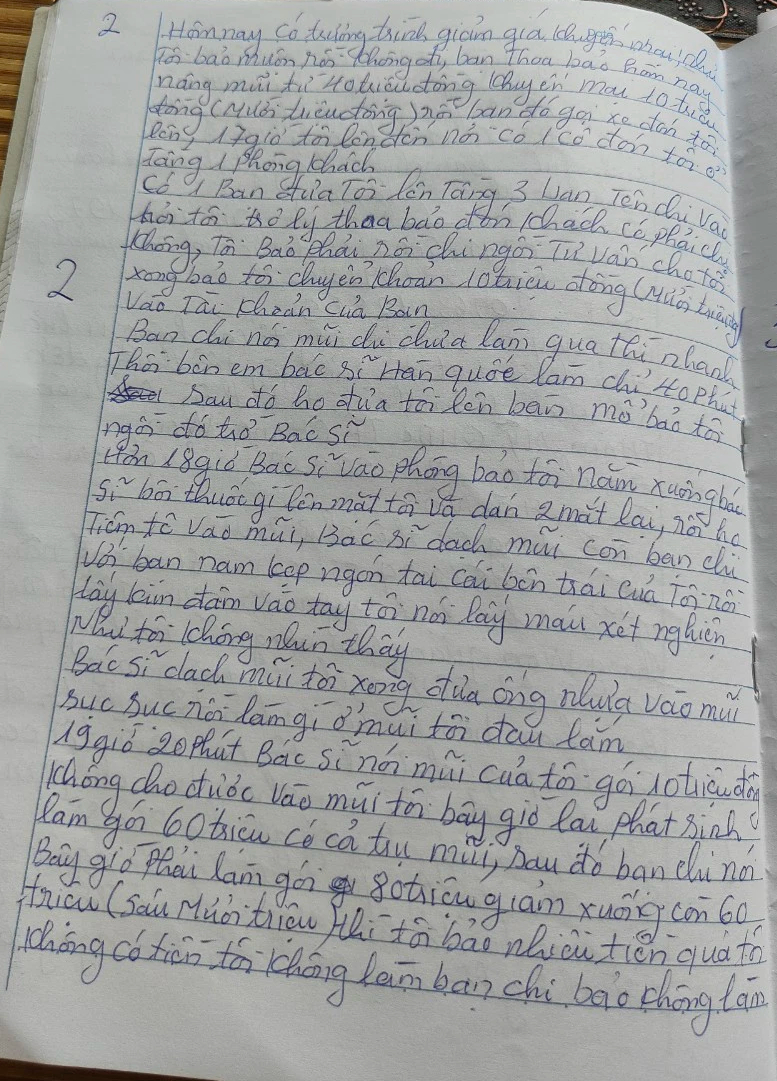 2
Hôm nay có trường trình giảm giá, khuyến mại, chu
Tôi bảo muốn rồi không đi, bạn Thoa bảo hôm nay
nâng mũi từ 40 triệu đồng khuyến mại 10 triệu
đồng (Mười triệu đồng) rồi bạn đó gọi xe đón tôi
lên, 17 giờ tôi lên đến nơi có 1 cô đón tôi ở
Tầng 1 phòng khách
Có 1 Bạn đưa Tôi lên Tầng 3 bạn Tên chi vào
hỏi tôi trở lý thoa bảo đón khách có phải chị
không, Tôi Bảo phải rồi chi ngồi Tư vấn cho tôi
2
xong bảo tôi chuyển khoản 10 triệu đồng (Mười triệu đồng)
Vào Tài khoản của Bạn
Bạn chi nói mũi chị chưa làm qua thì nhanh
Thôi bên em bác sĩ Hàn quốc làm chỉ 40 phút
Sau đó họ đưa tôi lên bàn mổ bảo tôi
ngồi đó trờ Bác sĩ
Hơn 18 giờ Bác sĩ vào phòng bảo tôi nằm xuống bác
sĩ bôi thuốc gì lên mặt tôi và dán 2 mắt lại, rồi họ
Tiêm tê vào mũi, Bác sĩ dạch mũi còn bạn chi
với bạn nam kẹp ngón tai cái bên trái của Tôi rồi
lấy kim đâm vào tay tôi nói lấy máu xét nghiên
Nhưi tôi không nhìn thấy
Bác sĩ dạch mũi tôi xong đưa ống nhựa vào mũi
sục sục rồi làm gì ở mũi tôi đau lắm
19 giờ 20 phút Bác sĩ nói mũi của tôi gói 10 triệu đồng
không cho được vào mũi tôi bây giờ lại phát sinh
làm gói 60 triệu có cả trụ mũi, sau đó bạn chi nói
Bây giờ phải làm gói 80 triệu giảm xuống còn 60
triệu (Sáu Mươi triệu) thì tôi bảo nhiều tiền quá tôi
không có tiền tôi không làm bạn chi bảo không làm